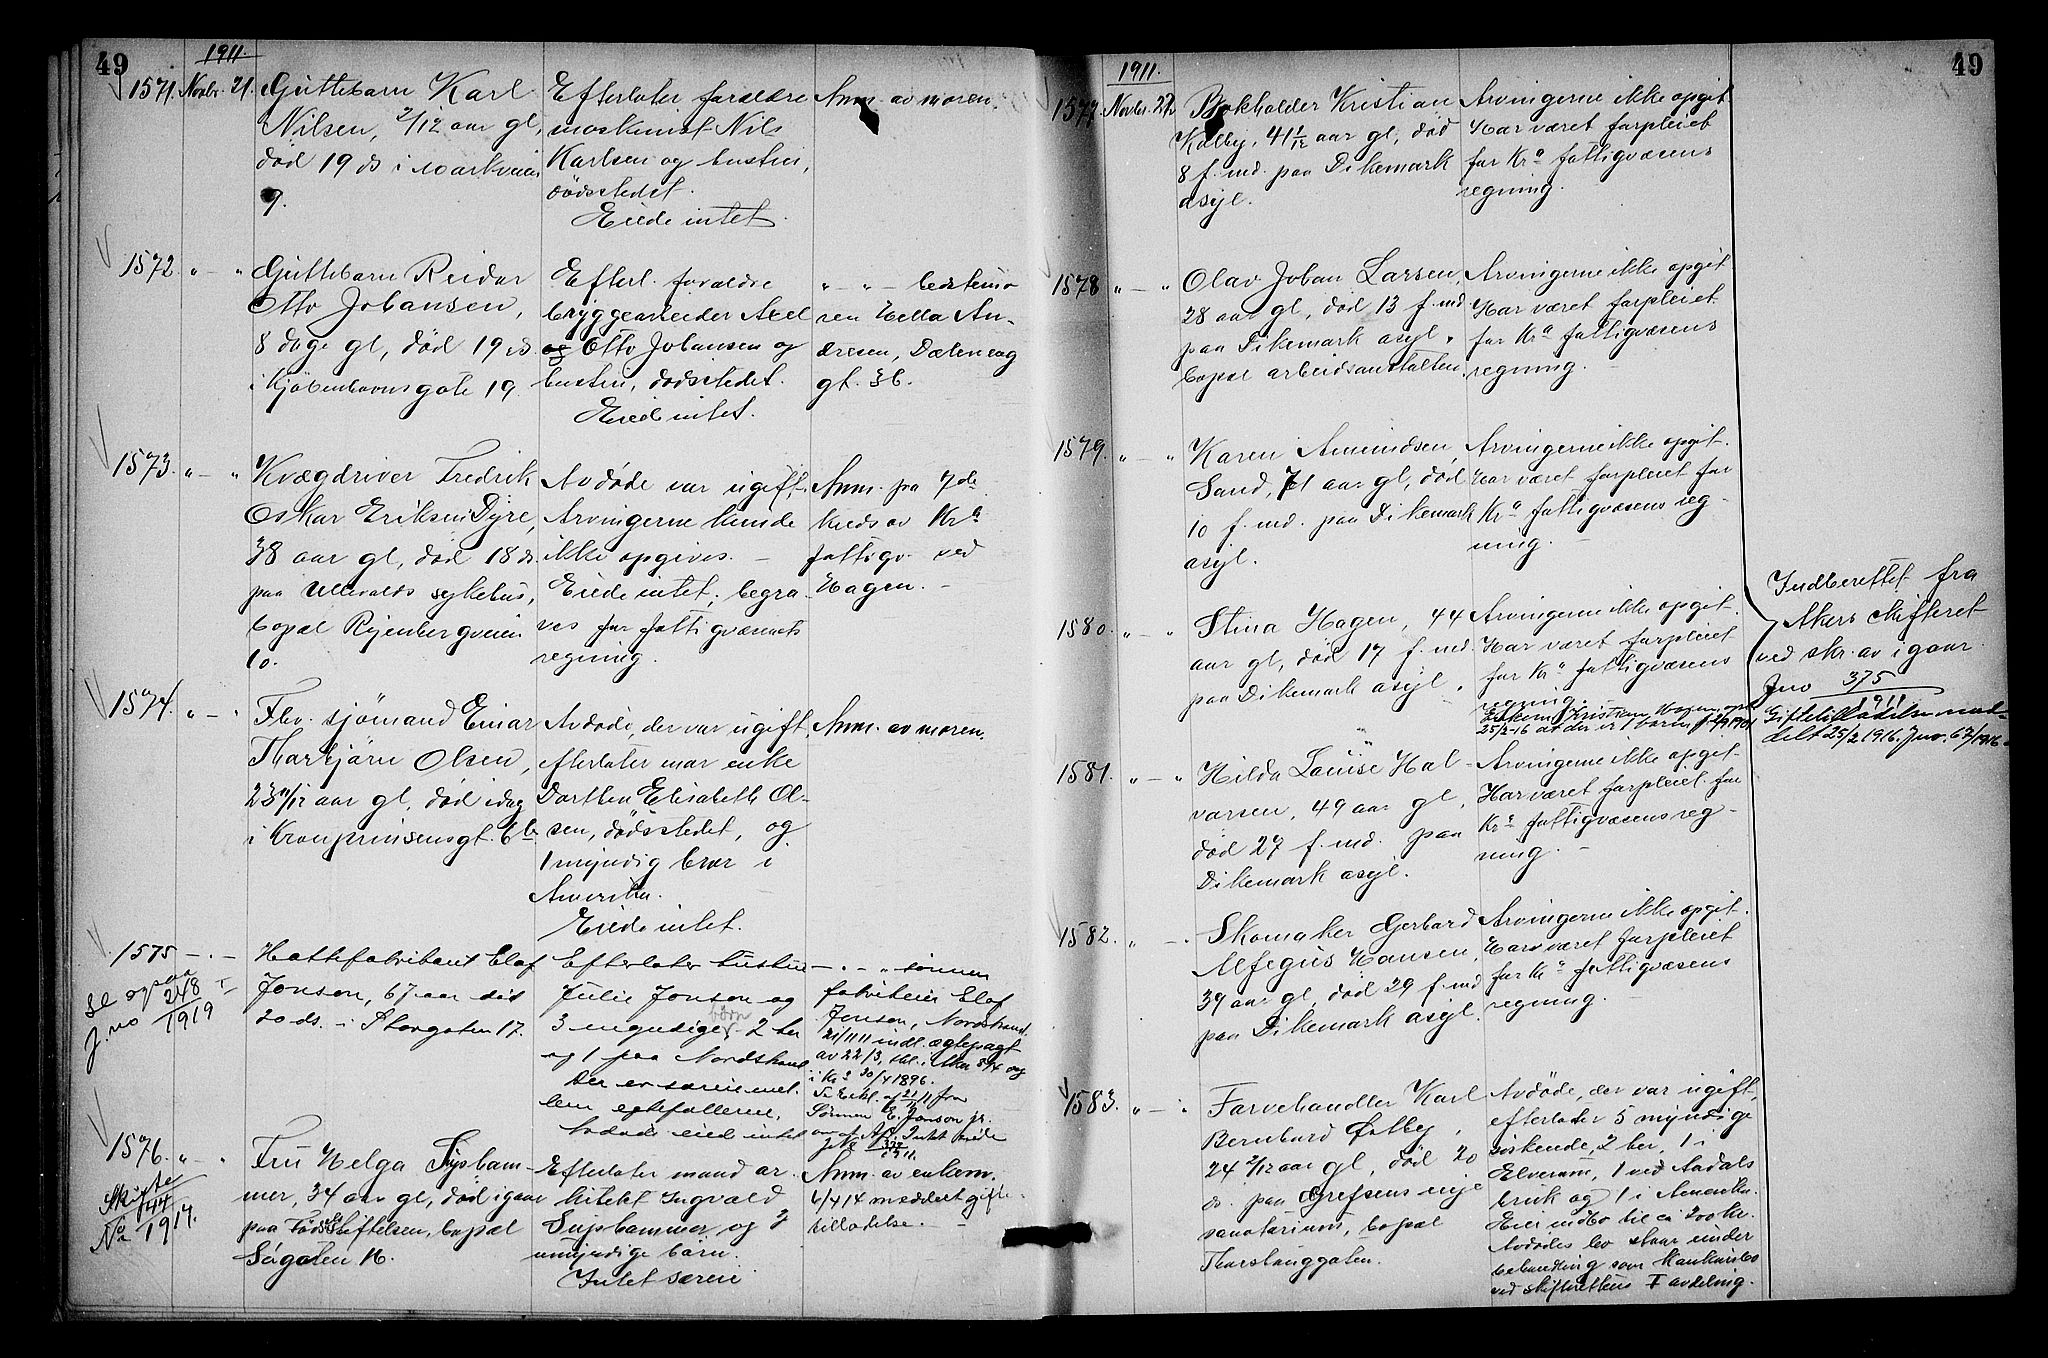 49
1911.
1571. Novbr. 21. Guttebarn Karl
Nilsen, 2/12 aar gl,
død 19 ds i Markveien
9.
Efterlater forældre
maskinist Nils
Karlsen og hustru,
dødsstedet.
Eiede intet.
Anm. av moren.
1572. " — " Guttebarn Reidar
Otto Johansen,
8 dage gl, død 19 ds
i Kjøbenhavnsgate 19.
Efterl. forældre
bryggearbeider Axel
og Otto Johansen og
hustru, dødsstedet.
Eiede intet.
" — " — bedstemo
ren Hella An-
dresen, Dæleneng
gt. 36.
1573. " — " Kvægdriver Fredrik
Oskar Eriksen Dyre,
38 aar gl, død 18 ds.
paa Ullevaals sykehus,
bopæl Ryenbergveien
10.
Avdøde var ugift.
Arvingerne kunde
ikke opgives. —
Eiede intet, begra
ves for fattigvæsenets
regning.
Anm. fra 7de
kreds av Kra
fattigv. ved
Hagen. —
1574. " — " Fhv. sjømand Einar
Thorbjørn Olsen,
23 11/12 aar gl, død idag
i Kronprinsensgt. 6b.
Avdøde, der var ugift,
efterlater mor enke
Dorthea Elisabeth Ol-
sen, dødsstedet, og
1 myndig bror i
Amerika.
Eiede intet.
Anm. av moren.
1575 — " — Hattefabrikant Elof
Jonson, 67 aar død
20 ds. i Storgaten 17.
Se ogsaa
J. no 248/1919
Efterlater hustru
Julie Jonson og
3 myndige børn 2 her
og 1 paa Nordstrand
Der er særeie mel-
lem egtefællerne,
avdøde eied intet
— " — " sønnen
fabrikeier Elof
Jonson, Nordstrand.
21/11 11 indl. ægtepagt
av 22/3, tkl. i Aker 8/4 og
i Kra 20/4 1896.
Sønnen E. Jonson jr.
1576. " — " Fru Helga Sysham-
mer, 34 aar gl, død igaar
paa Fødselsstiftelsen, bopæl
Søgaten 16.
Skifte
No 144/1914.
Efterlater mand ar-
kitekt Ingvald
Syshammer og 3
umyndige børn.
Intet særeie
Anm. av enkem.
6/4 14 meddelt gifte-
tilladelse. —
49
1911.
1577. Novbr. 22. Bokholder Kristian
Kolby, 41 1/12 aar gl, død
8 f. md. paa Dikemark
asyl.
Arvingerne ikke opgit
Har været forpleiet
for Kra fattigvæsens
regning.
1578 " — " Olav Johan Larsen,
28 aar gl, død 13 f. md.
paa Dikemark asyl,
bopæl arbeidsanstalten.
Arvingerne ikke opgit
Har været forpleiet
for Kra fattigvæsens
regning. —
1579. " — " Karen Amundsen
Sand, 71 aar gl, død
10 f. md. paa Dikemark
asyl.
Arvingerne ikke opgit.
Har været forpleiet for
Kra fattigvæsens reg-
ning. —
1580. " — " Stina Hagen, 44
aar gl, død 17 f. md.
paa Dikemark asyl.
Arvingerne ikke opgit.
Har været forpleiet
for Kra fattigvæsens
regning.
Enkem. Kristian Hagen opl.
25/2-16 at der er 1 barn f. 2/9 1901
1581. " — " Hilda Louise Hal-
varsen, 49 aar gl,
død 27 f. md. paa
Dikemark asyl.
Arvingerne ikke opgit
Har været forpleiet for
Kra fattigvæsens reg-
ning. —
1582. " — " Skomaker Gerhard
Alfegius Hansen,
39 aar gl, død 29 f. md
paa Dikemark asyl.
Arvingerne ikke opgit.
Har været forpleiet
for Kra fattigvæsens
regning. —
Indberettet fra
Akers skifteret
ved skr. av igaar
Jno 375/1911
Giftetilladelse med-
delt 25/2 1916. Jno. 67/1916
1583. " — " Farvehandler Karl
Bernhard Østby,
24 2/12 aar gl, død 20
ds. paa Grefsens nye
sanatorium, bopæl
Thorshauggaten.
Avdøde, der var ugift,
efterlader 5 myndige
søskende, 2 her, 1 i
Elverum, 1 ved Aadals
bruk og 1 i Amerika.
Eier indbo til ca 200 kr.
Avdødes bo staar under
behandling som konkursbo
ved skifterettens I avdeling.